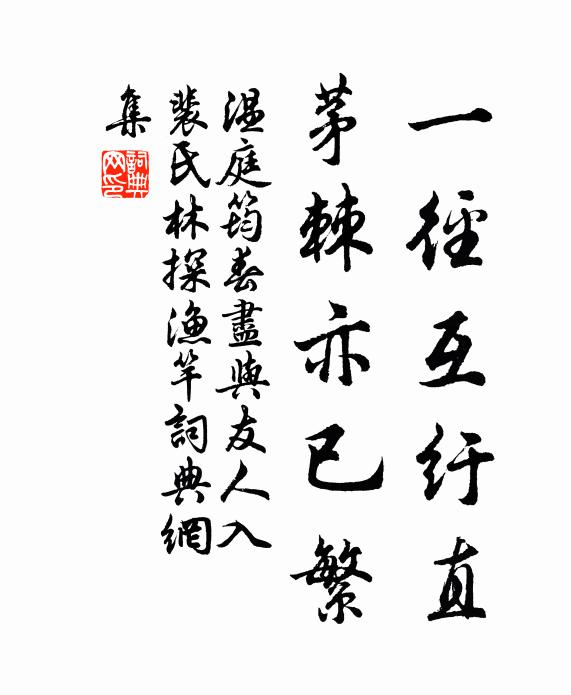 一徑互紆直
茅棘亦已繁
溫庭筠春盡與友人入
裴氏林探漁竿詞典網
集
詞典網印